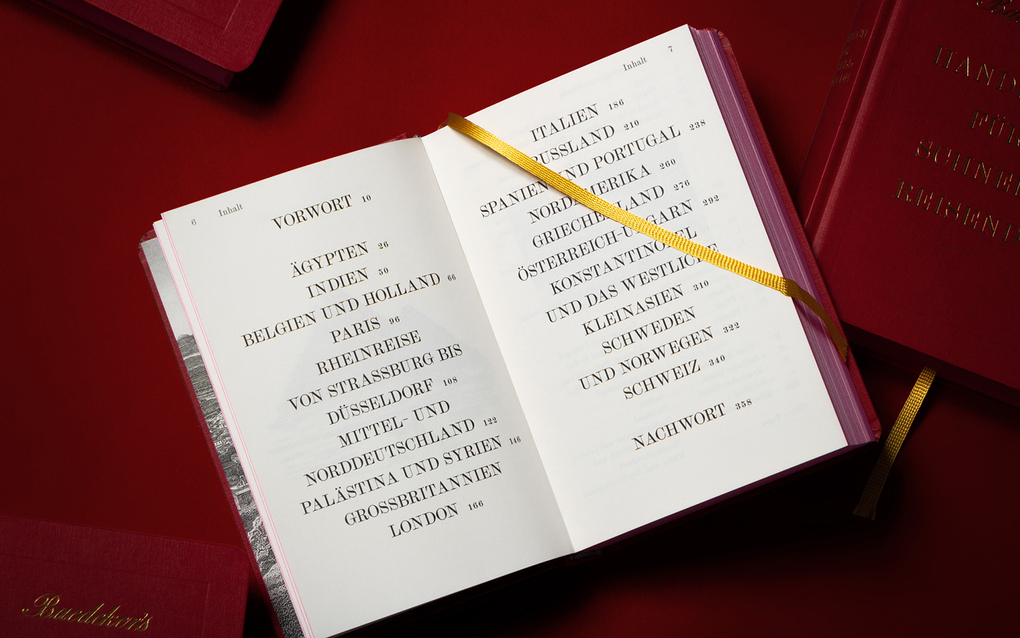 6 Inhalt
VORWORT 10
ÄGYPTEN 26
INDIEN 50
BELGIEN UND HOLLAND 66
PARIS 96
RHEINREISE
VON STRASSBURG BIS
DÜSSELDORF 108
MITTEL- UND
NORDDEUTSCHLAND 122
PALÄSTINA UND SYRIEN 146
GROSSBRITANNIEN
LONDON 166
Inhalt 7
ITALIEN 186
RUSSLAND 210
SPANIEN UND PORTUGAL 238
NORDAMERIKA 260
GRIECHENLAND 276
ÖSTERREICH-UNGARN 292
KONSTANTINOPEL
UND DAS WESTLICHE
KLEINASIEN 310
SCHWEDEN
UND NORWEGEN 322
SCHWEIZ 340
NACHWORT 358
HAND
FÜR
SCHNEL
REISEND
Baedeker's